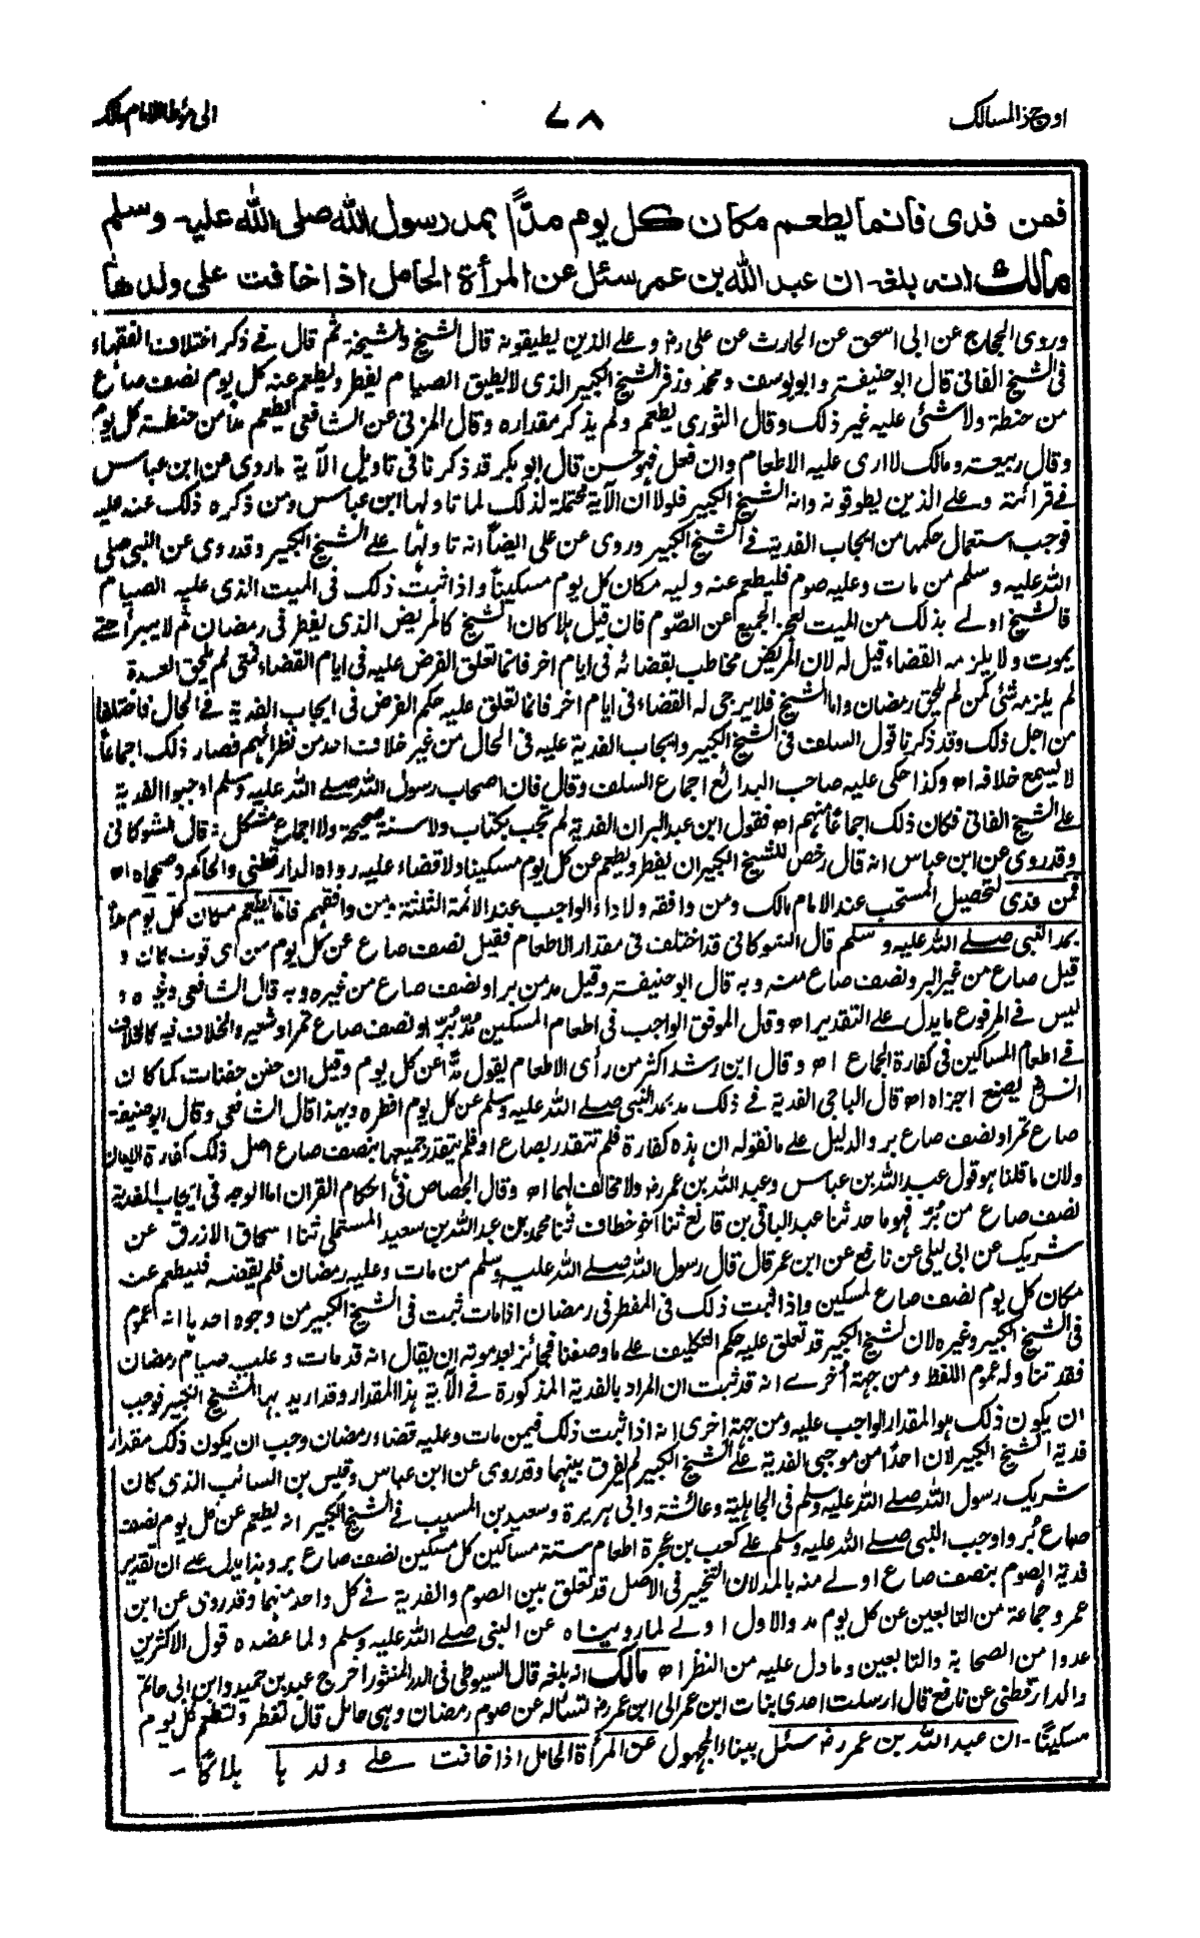 اوجز المسالك ٧٨ الى مؤطا الامام مالك
فمن فدى فانما يطعم مكان كل يوم مدًّا بمد رسول الله صلى الله عليه وسلم
مالك انه بلغه ان عبد الله بن عمر سئل عن المرأة الحامل اذا خافت على ولدها
وروى الحجاج عن ابى اسحق عن الحارث عن على رض وعلى الذين يطيقونه قال الشيخ والشيخة ثم قال فى ذكر اختلاف الفقهاء
فى الشيخ الفانى قال ابو حنيفة وابو يوسف ومحمد وزفر الشيخ الكبير الذى لا يطيق الصيام يفطر ويطعم عنه كل يوم نصف صاع
من حنطة ولا شئى عليه غير ذلك وقال الثورى يطعم ولم يذكر مقداره وقال المزنى عن الشافعى يطعم مدا من حنطة كل يوم
وقال ربيعة ومالك لا ارى عليه الاطعام وان فعل فهو حسن قال ابو بكر قد ذكرنا فى تاويل الآية ما روى عن ابن عباس
فى قرائته وعلى الذين يطوقونه وانه الشيخ الكبير فلولا ان الآية محتملة لذلك لما تاولها ابن عباس ومن ذكره ذلك عنه عليه
فوجب استعمال حكمها من ايجاب الفدية فى الشيخ الكبير وروى عن على ايضًا انه تاولها على الشيخ الكبير وقد روى عن النبى صلى
الله عليه وسلم من مات وعليه صوم فليطعم عنه وليه مكان كل يوم مسكينًا واذا ثبت ذلك فى الميت الذى عليه الصيام
فالشيخ اولى بذلك من الميت لعجز الجميع عن الصوم فان قيل هلا كان الشيخ كالمريض الذى يفطر فى رمضان ثم لا يبرأ حتى
يموت ولا يلزمه القضاء قيل له لان المريض مخاطب بقضائه فى ايام اخر فانما تعلق الفرض عليه فى ايام القضاء فمتى لم يلحق العدة
لم يلزمه شئى كمن لم يلحق رمضان واما الشيخ فلا يرجى له القضاء فى ايام اخر فانما تعلق عليه حكم الفرض فى ايجاب الفدية فى الحال فاختلفا
من اجل ذلك وقد ذكرنا قول السلف فى الشيخ الكبير وايجاب الفدية عليه فى الحال من غير خلاف احد من نظرائهم فصار ذلك اجماعًا
لا يسمع خلافه اه وكذا حكى عليه صاحب البدائع اجماع السلف وقال فان اصحاب رسول الله صلى الله عليه وسلم اوجبوا الفدية
على الشيخ الفانى فكان ذلك اجماعًا منهم اه فقول ابن عبد البر ان الفدية لم تجب بكتاب ولا سنة صحيحة ولا اجماع مشكل: قال الشوكانى
وقد روى عن ابن عباس انه قال رخص للشيخ الكبير ان يفطر ويطعم عن كل يوم مسكينا ولا قضاء عليه رواه الدارقطنى والحاكم وصححاه اه
فمن فدى لتحصيل المستحب عند الامام مالك ومن وافقه ولاداء الواجب عند الائمة الثلثة ومن وافقهم فانما يطعم مكان كل يوم مدا
بمد النبى صلى الله عليه وسلم قال الشوكانى قد اختلف فى مقدار الاطعام فقيل نصف صاع عن كل يوم من اى قوت كان و
قيل صاع من غير البر ونصف صاع منه وبه قال ابو حنيفة وقيل مد من بر او نصف صاع من غيره وبه قال الشافعى وغيره و
ليس فى المرفوع ما يدل على التقدير اه وقال الموفق الواجب فى اطعام المسكين مد بُرّ او نصف صاع تمر او شعير والخلاف فيه كالخلاف
فى اطعام المساكين فى كفارة الجماع اه وقال ابن رشد اكثر من رأى الاطعام يقول مدًّا عن كل يوم وقيل ان حفن حفنات كما كان
انس يصنع اجزاه اه قال الباجى الفدية فى ذلك مد بمد النبى صلى الله عليه وسلم عن كل يوم افطره وبهذا قال الشافعى وقال ابو حنيفة
صاع تمر او نصف صاع بر والدليل على ما نقوله ان هذه كفارة فلم تتقدر بصاع او فلم يتقدر جميعها بنصف صاع اصل ذلك كفارة الايمان
ولان ما قلنا هو قول عبد الله بن عباس وعبد الله بن عمر رض ولا مخالف لهما اه وقال الجصاص فى احكام القران اما الوجه فى ايجاب الفدية
نصف صاع من بُرّ فهو ما حدثنا عبد الباقى بن قانع ثنا اخو خطاف ثنا محمد بن عبد الله بن سعيد المستملى ثنا اسحاق الازرق عن
شريك عن ابى ليلى عن نافع عن ابن عمر قال قال رسول الله صلى الله عليه وسلم من مات وعليه رمضان فلم يقضه فليطعم عنه
مكان كل يوم نصف صاع لمسكين واذا ثبت ذلك فى المفطر فى رمضان اذا مات ثبت فى الشيخ الكبير من وجوه احدها انه عموم
فى الشيخ الكبير وغيره لان الشيخ الكبير قد تعلق عليه حكم التكليف على ما وصفنا فجائز بعد موته ان يقال انه قد مات وعليه صيام رمضان
فقد تناوله عموم اللفظ ومن جهة أخرى انه قد ثبت ان المراد بالفدية المذكورة فى الآية هذا المقدار وقد اريد بها الشيخ الكبير فوجب
ان يكون ذلك هو المقدار الواجب عليه ومن جهة اخرى انه اذا ثبت ذلك فيمن مات وعليه قضاء رمضان وجب ان يكون ذلك مقدار
فدية الشيخ الكبير لان احدًا من موجبى الفدية على الشيخ الكبير لم يفرق بينهما وقد روى عن ابن عباس وقيس بن السائب الذى كان
شريك رسول الله صلى الله عليه وسلم فى الجاهلية وعائشة وابى هريرة وسعيد بن المسيب فى الشيخ الكبير انه يطعم عن كل يوم نصف
صاع بُر واوجب النبى صلى الله عليه وسلم على كعب بن عجرة اطعام ستة مساكين كل مسكين نصف صاع بر وهذا يدل على ان تقدير
فدية الصوم بنصف صاع اولى منه بالمد لان التخيير فى الاصل قد تعلق بين الصوم والفدية فى كل واحد منهما وقد روى عن ابن
عمر وجماعة من التابعين عن كل يوم مد والاول اولى لما رويناه عن النبى صلى الله عليه وسلم ولما عضده قول الاكثرين
عددا من الصحابة والتابعين وما دل عليه من النظر اه مالك انه بلغه قال السيوطى فى الدر المنثور اخرج عبد بن حميد وابن ابى حاتم
والدارقطنى عن نافع قال ارسلت احدى بنات ابن عمر الى ابن عمر رض تسأله عن صوم رمضان وهى حامل قال تفطر وتطعم كل يوم
مسكينًا - ان عبد الله بن عمر رض سئل ببناء المجهول عن المرأة الحامل اذا خافت على ولدها هلاكًا -